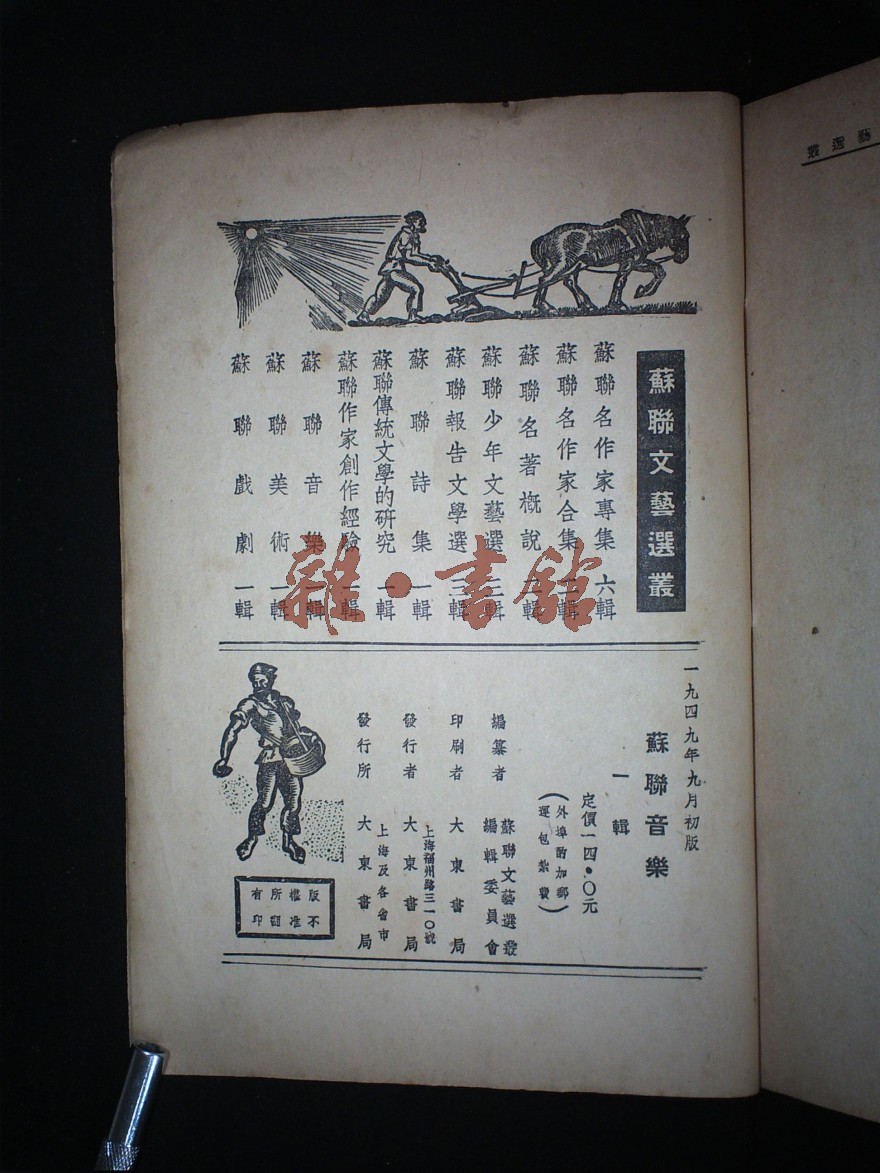 蘇聯文藝選叢
蘇聯名作家專集 六輯
蘇聯名作家合集 輯
蘇聯名著概說 輯
蘇聯少年文藝選 輯
蘇聯報告文學選 三輯
蘇聯詩集 一輯
蘇聯傳統文學的研究 一輯
蘇聯作家創作經驗 輯
蘇聯音樂 一輯
蘇聯美術 一輯
蘇聯戲劇 一輯
雜·書館
一九四九年九月初版
蘇聯音樂
一輯
定價一四·〇元
(外埠酌加郵
運包紮費)
編纂者 蘇聯文藝選叢
編輯委員會
印刷者 大東書局
上海福州路三一〇號
發行者 大東書局
上海及各省市
發行所 大東書局
版權所有
不准翻印
藝選叢